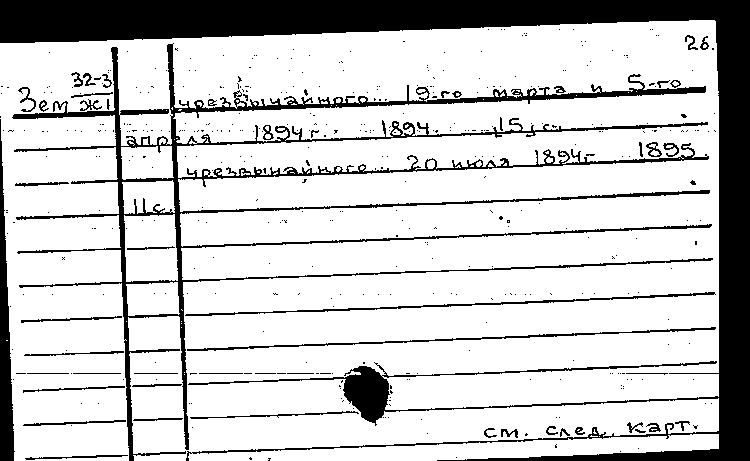 26.
32-3
Зем ЖI
чрезвычайного... 19-го марта и 5-го
апреля 1894г.. 1894. 15 с.
чрезвычайного.. 20 июля 1894г 1895
11с.
см. след. карт.